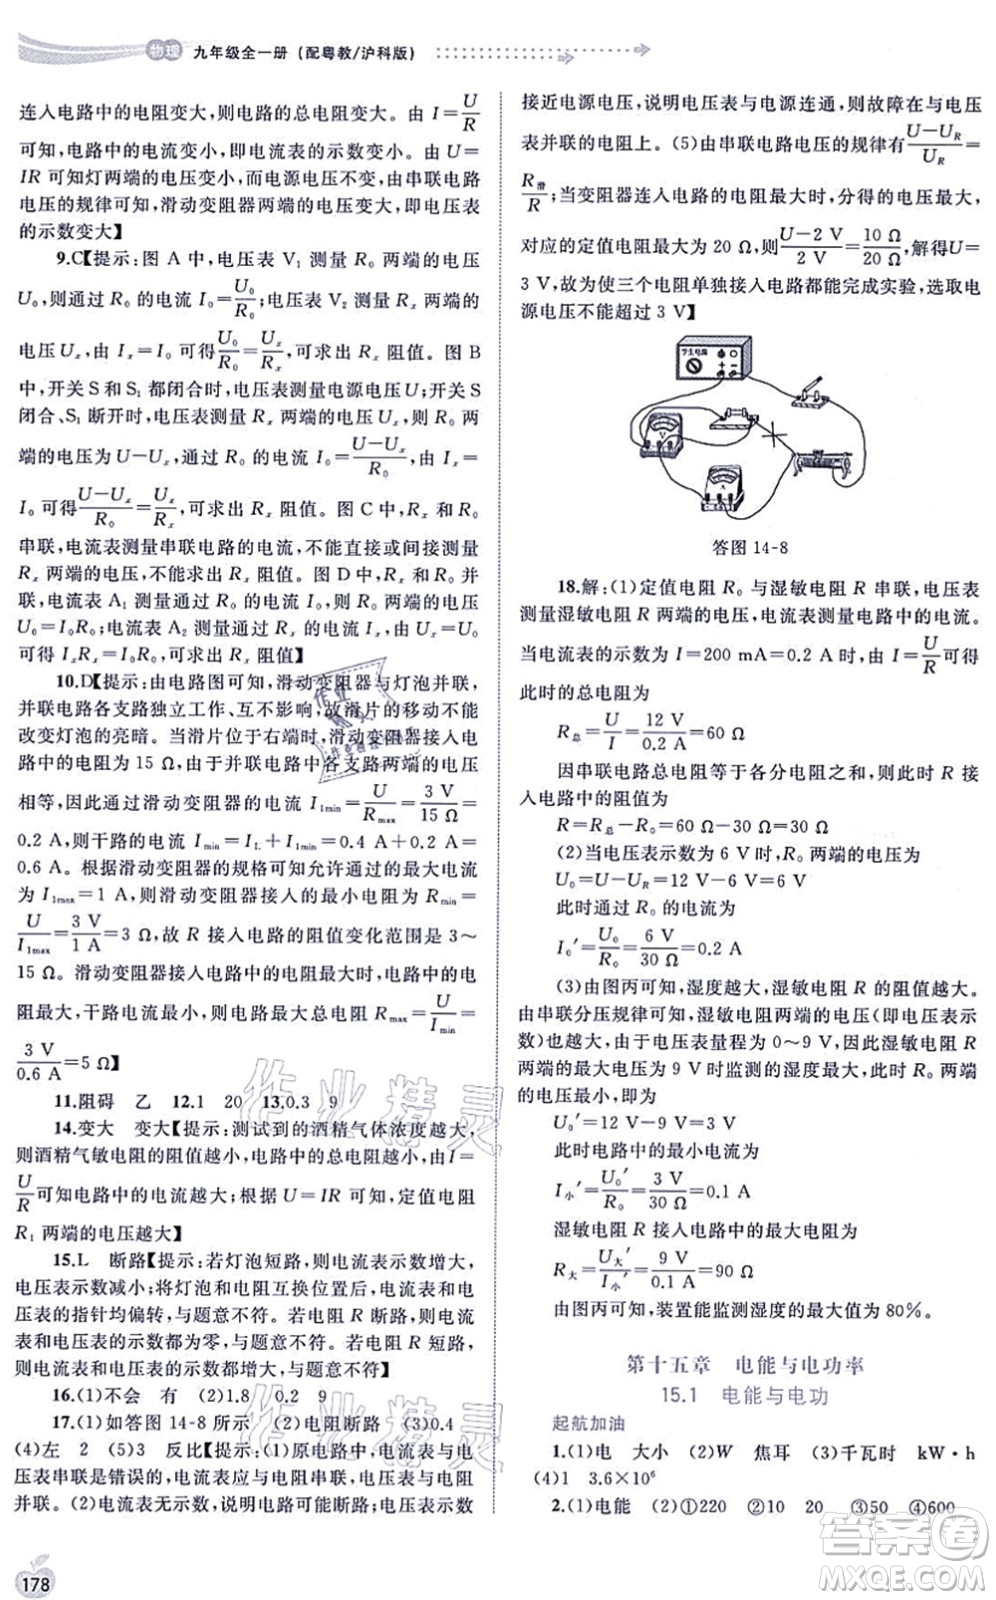 物理 九年级全一册(配粤教/沪科版)
连入电路中的电阻变大,则电路的总电阻变大。由 I=U/R
可知,电路中的电流变小,即电流表的示数变小。由 U=
IR 可知灯两端的电压变小,而电源电压不变,由串联电路
电压的规律可知,滑动变阻器两端的电压变大,即电压表
的示数变大】
9.C【提示:图 A 中,电压表 V₁ 测量 R₀ 两端的电压
U₀,则通过 R₀ 的电流 I₀=U₀/R₀;电压表 V₂ 测量 Rₓ 两端的
电压 Uₓ,由 Iₓ=I₀ 可得U₀/R₀=Uₓ/Rₓ,可求出 Rₓ 阻值。图 B
中,开关 S 和 S₁ 都闭合时,电压表测量电源电压 U;开关 S
闭合、S₁ 断开时,电压表测量 Rₓ 两端的电压 Uₓ,则 R₀ 两
端的电压为 U-Uₓ,通过 R₀ 的电流 I₀=(U-Uₓ)/R₀,由 Iₓ=
I₀ 可得(U-Uₓ)/R₀=Uₓ/Rₓ,可求出 Rₓ 阻值。图 C 中,Rₓ 和 R₀
串联,电流表测量串联电路的电流,不能直接或间接测量
Rₓ 两端的电压,不能求出 Rₓ 阻值。图 D 中,Rₓ 和 R₀ 并
联,电流表 A₁ 测量通过 R₀ 的电流 I₀,则 R₀ 两端的电压
U₀=I₀R₀;电流表 A₂ 测量通过 Rₓ 的电流 Iₓ,由 Uₓ=U₀
可得 IₓRₓ=I₀R₀,可求出 Rₓ 阻值】
10.D【提示:由电路图可知,滑动变阻器与灯泡并联,
并联电路各支路独立工作、互不影响,故滑片的移动不能
改变灯泡的亮暗。当滑片位于右端时,滑动变阻器接入电
路中的电阻为 15 Ω,由于并联电路中各支路两端的电压
相等,因此通过滑动变阻器的电流 I₁min=U/Rmax=3 V/15 Ω=
0.2 A,则干路的电流 Imin=IL+I₁min=0.4 A+0.2 A=
0.6 A。根据滑动变阻器的规格可知允许通过的最大电流
为 I₁max=1 A,则滑动变阻器接入的最小电阻 Rmin=
U/I₁max=3 V/1 A=3 Ω,故 R 接入电路的阻值变化范围是 3～
15 Ω。滑动变阻器接入电路中的电阻最大时,电路中的电
阻最大,干路电流最小,电路最大总电阻 Rmax=U/Imin=
3 V/0.6 A=5 Ω】
11.阻碍 乙 12.1 20 13.0.3 9
14.变大 变大【提示:测试到的酒精气体浓度越大,
则酒精气敏电阻的阻值越小,电路的总电阻越小,由 I=
U/R可知电路中的电流越大;根据 U=IR 可知,定值电阻
R₁ 两端的电压越大】
15.L 断路【提示:若灯泡短路,则电流表示数增大,
电压表示数减小;将灯泡和电阻互换位置,电流表和电压表
的指针均偏转,与题意不符。若电阻 R 断路,则电流
表和电压表的示数都为零,与题意不符。若电阻 R 短路,
则电流表和电压表的示数都增大,与题意不符】
16.(1)不会 有 (2)1.8 0.2 9
17.(1)如答图 14-8 所示 (2)电阻断路 (3)0.4
(4)左 2 (5)3 反比【提示:(1)原电路中,电流表与电
压表串联是错误的,电流表应与电阻串联,电压表与电阻
并联。(2)电流表无示数,说明电路可能断路;电压表示数
接近电源电压,说明电压表与电源连通,则故障在与电压
表并联的电阻断路。(5)由串联电路电压的规律有(U-UR)/UR=
R滑/R;当变阻器连入电路的电阻最大时,分得的电压最大,
对应的定值电阻最大为 20 Ω,则(U-2 V)/2 V=10 Ω/20 Ω,解得U=
3 V,故为使三个电阻单独接入电路都能完成实验,选取电
源电压不能超过 3 V】
学生电源
V
A
答图 14-8
18.解:(1)定值电阻 R₀ 与湿敏电阻 R 串联,电压表
测量湿敏电阻 R 两端的电压,电流表测量电路中的电流。
当电流表的示数为 I=200 mA=0.2 A 时,由 I=U/R可得
此时的总电阻为
R总=U/I=12 V/0.2 A=60 Ω
因串联电路总电阻等于各分电阻之和,则此时 R 接
入电路中的阻值为
R=R总-R₀=60 Ω-30 Ω=30 Ω
(2)当电压表示数为 6 V 时,R₀ 两端的电压为
U₀=U-UR=12 V-6 V=6 V
此时通过 R₀ 的电流为
I₀′=U₀/R₀=6 V/30 Ω=0.2 A
(3)由图丙可知,湿度越大,湿敏电阻 R 的阻值越大。
由串联分压规律可知,湿敏电阻两端的电压(即电压表示
数)也越大,由于电压表量程为 0～9 V,因此湿敏电阻 R
两端的电压为 9 V 时监测的湿度最大,此时 R₀ 两端的
电压最小,即为
U₀′=12 V-9 V=3 V
此时电路中的最小电流为
I小′=U₀′/R₀=3 V/30 Ω=0.1 A
湿敏电阻 R 接入电路中的最大电阻为
R大=U大′/I小′=9 V/0.1 A=90 Ω
由图丙可知,装置能监测湿度的最大值为 80%。
第十五章 电能与电功率
15.1 电能与电功
起航加油
1.(1)电 大小 (2)W 焦耳 (3)千瓦时 kW·h
(4)1 3.6×10⁶
2.(1)电能 (2)①220 ②10 20 ③50 ④600
178
作业精灵
作业精灵
答案圈
MXQE.COM